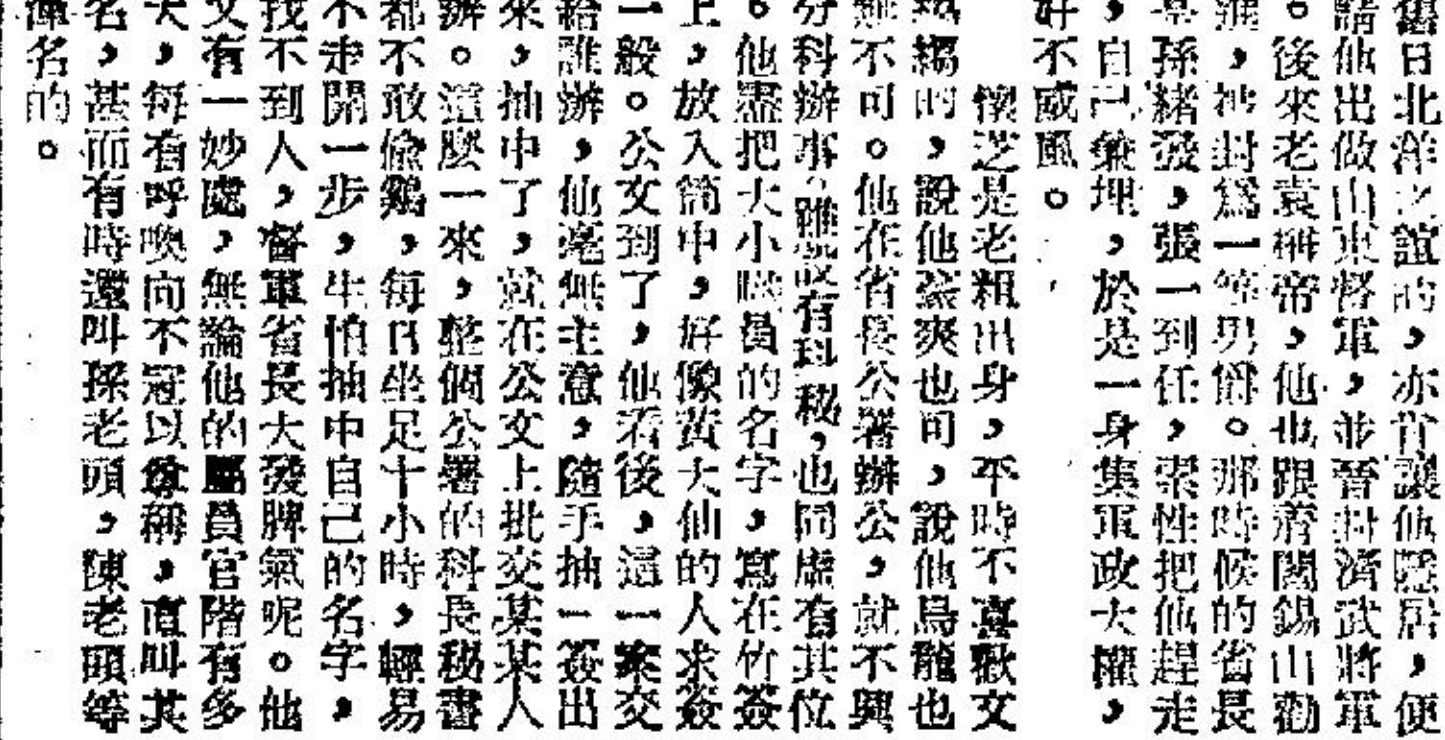 舊日北洋之誼的,亦肯讓他隱居,便
請他出做山東督軍,並晉封濟武將軍
。後來老袁稱帝,他也跟着閻錫山勸
進,被封爲一等男爵。那時候的省長
是孫緒發,張一到任,索性把他趕走
,自己兼理,於是一身集軍政大權,
好不威風。
懷芝是老粗出身,平時不喜歡文
縐縐的,說他豪爽也可,說他烏龍也
無不可。他在省長公署辦公,就不興
分科辦事,雖說設有科秘,也同虛有其位
。他盡把大小職員的名字,寫在竹簽
上,放入筒中,好像黃大仙的人求簽
一般。公文到了,他看後,這一案交
給誰辦,他毫無主意,隨手抽一簽出
來,抽中了,就在公文上批交某某人
辦。這麼一來,整個公署的科長秘書
都不敢偷鷄,每日坐足十小時,輕易
不走開一步,生怕抽中自己的名字,
找不到人,督軍省長大發脾氣呢。他
又有一妙處,無論他的屬員官階有多
大,每有呼喚向不冠以尊稱,直叫其
名,甚而有時還叫孫老頭,陳老頭等
渾名的。